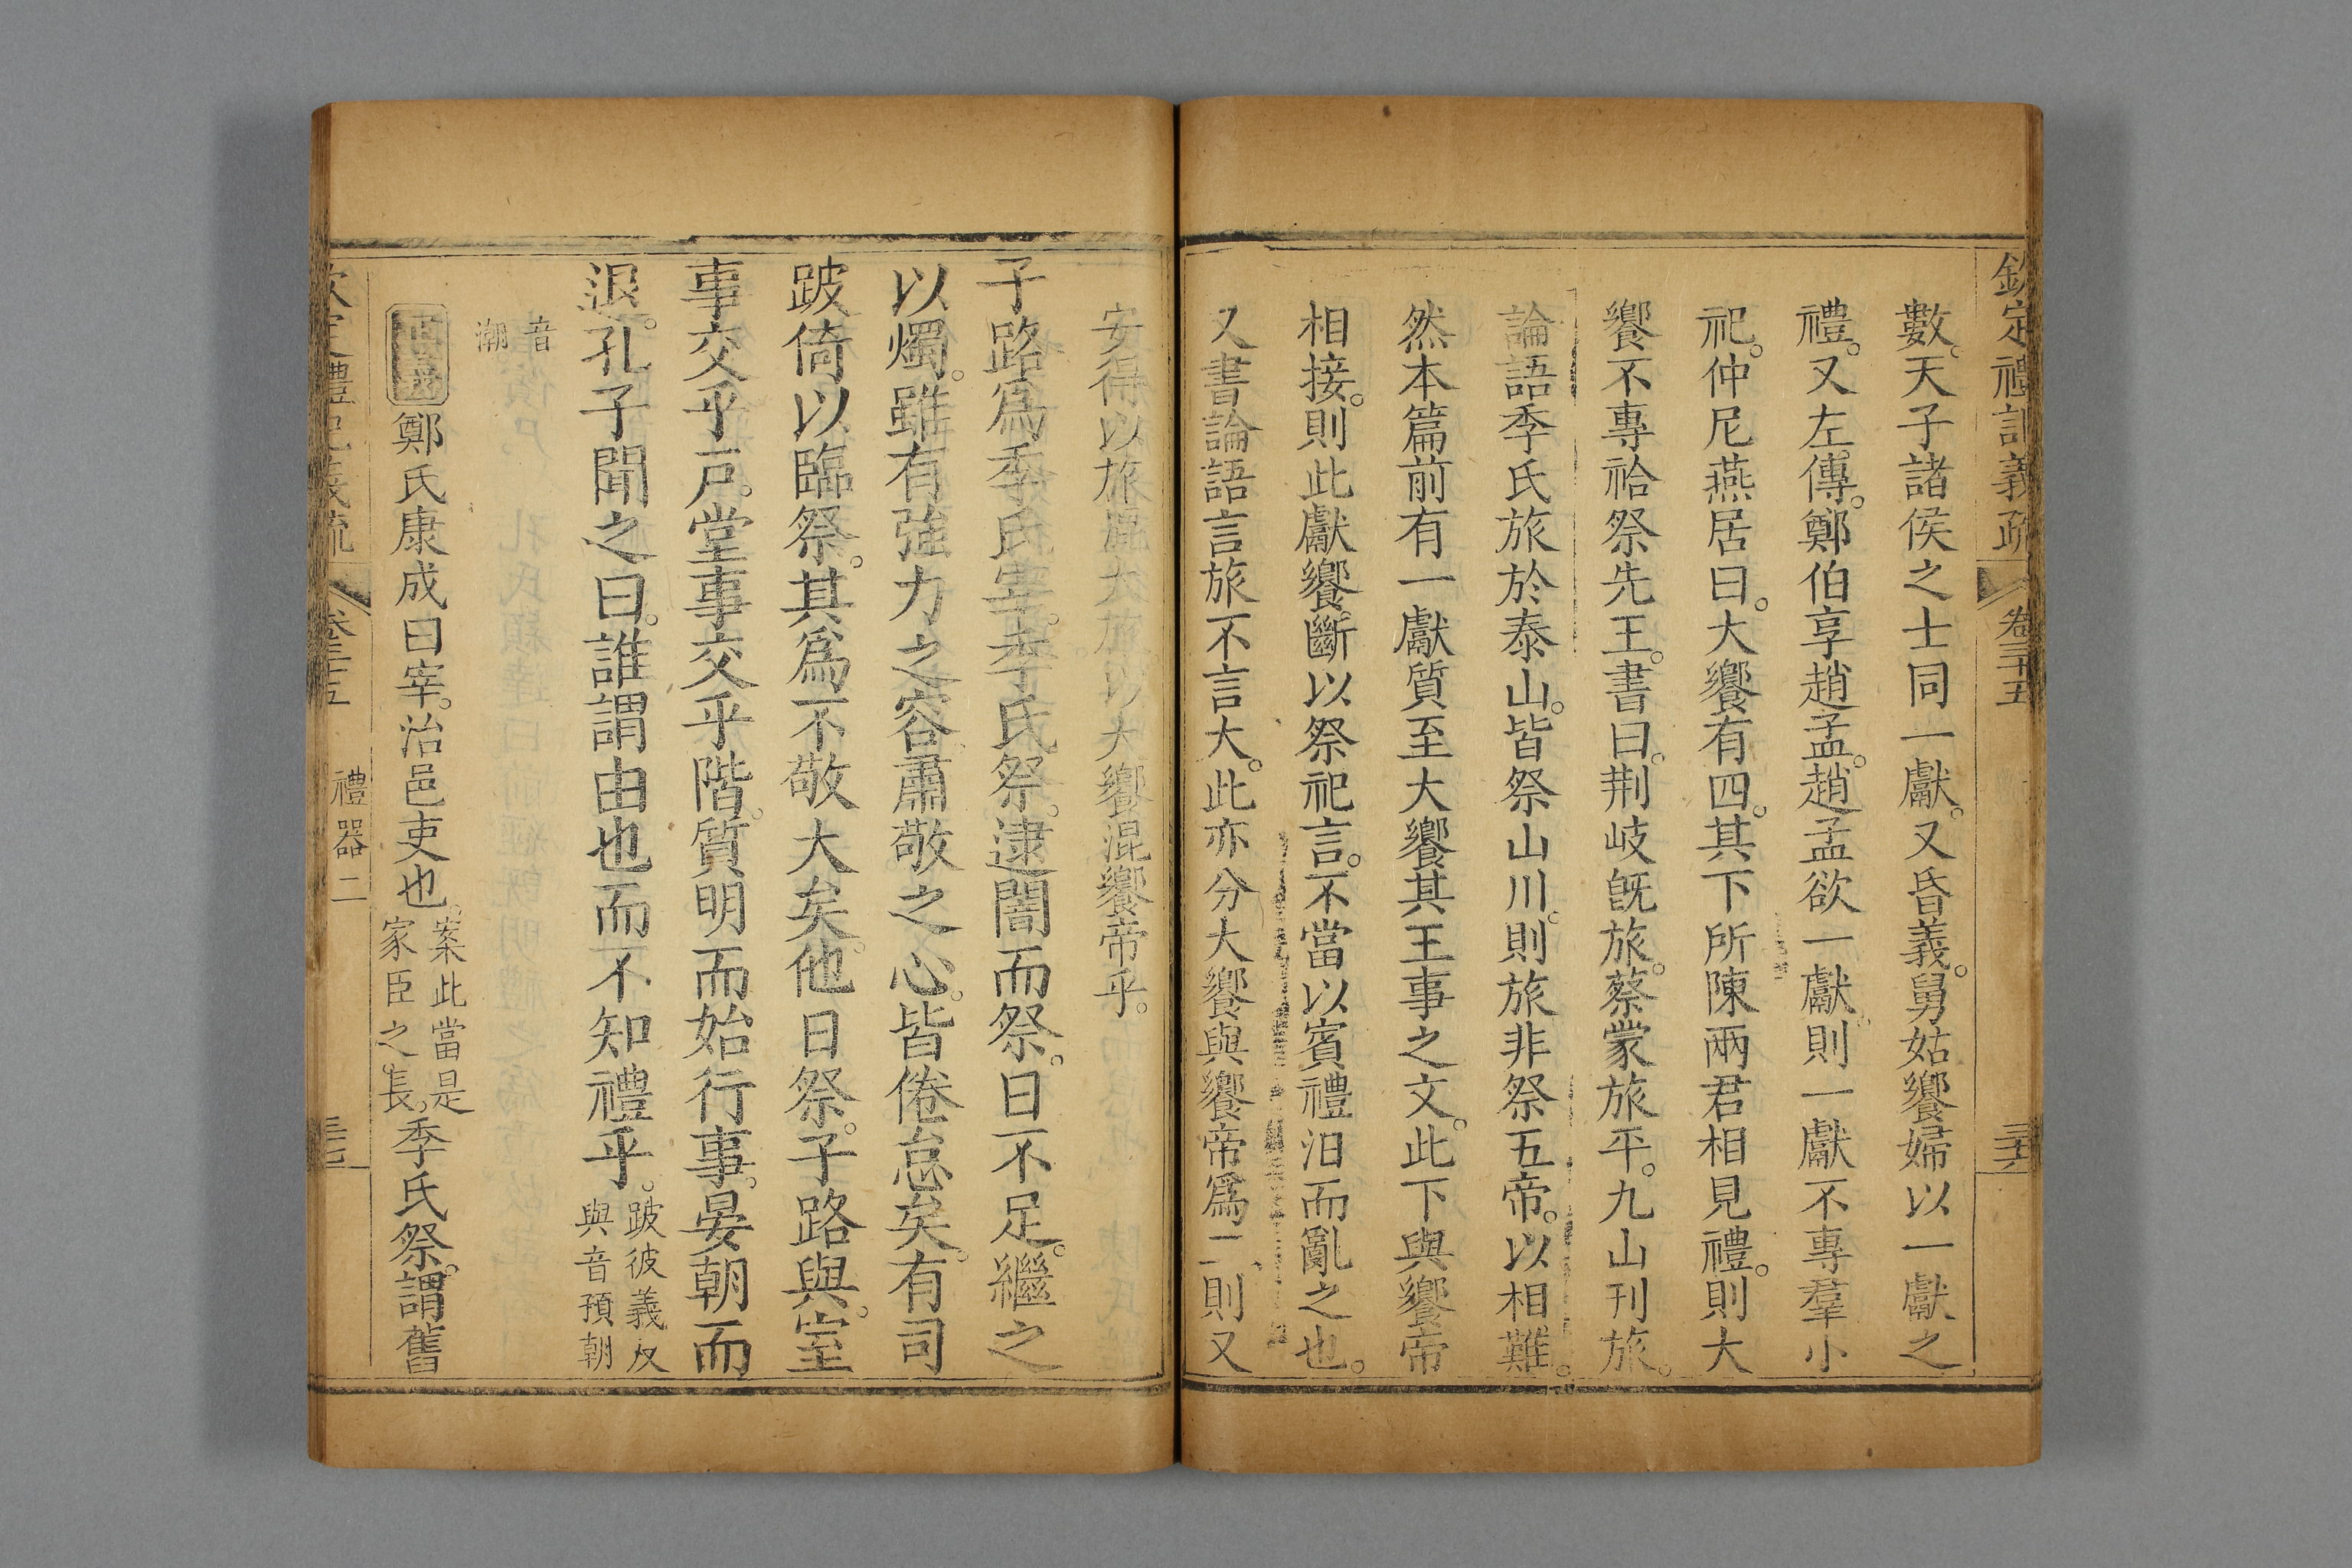 欽定禮記義疏 卷三十五 三六
數。天子諸侯之士同一獻。又昏義。舅姑饗婦以一獻之
禮。又左傳。鄭伯享趙孟。趙孟欲一獻。則一獻不專羣小
祀。仲尼燕居曰。大饗有四。其下所陳兩君相見禮。則大
饗不專祫祭先王。書曰。荆岐旣旅。蔡蒙旅平。九山刊旅。
論語季氏旅於泰山。皆祭山川。則旅非祭五帝。以相難。
然本篇前有一獻質至大饗其王事之文。此下與饗帝
相接。則此獻饗。斷以祭祀言。不當以賓禮汨而亂之也。
又書論語言旅不言大。此亦分大饗與饗帝爲二、則又
安得以旅混大旅。以大饗混饗帝乎。
子路爲季氏宰。季氏祭。逮闇而祭。日不足。繼之
以燭。雖有強力之容肅敬之心。皆倦怠矣。有司
跛倚以臨祭。其爲不敬大矣。他日祭。子路與。室
事交乎戸。堂事交乎階。質明而始行事。晏朝而
退。孔子聞之曰。誰謂由也而不知禮乎。跛彼義反
與音預朝
音
潮
正義鄭氏康成曰宰。治邑吏也。案此當是
家臣之長。季氏祭。謂舊
欽定禮記義疏 卷三十五 禮器二 三七